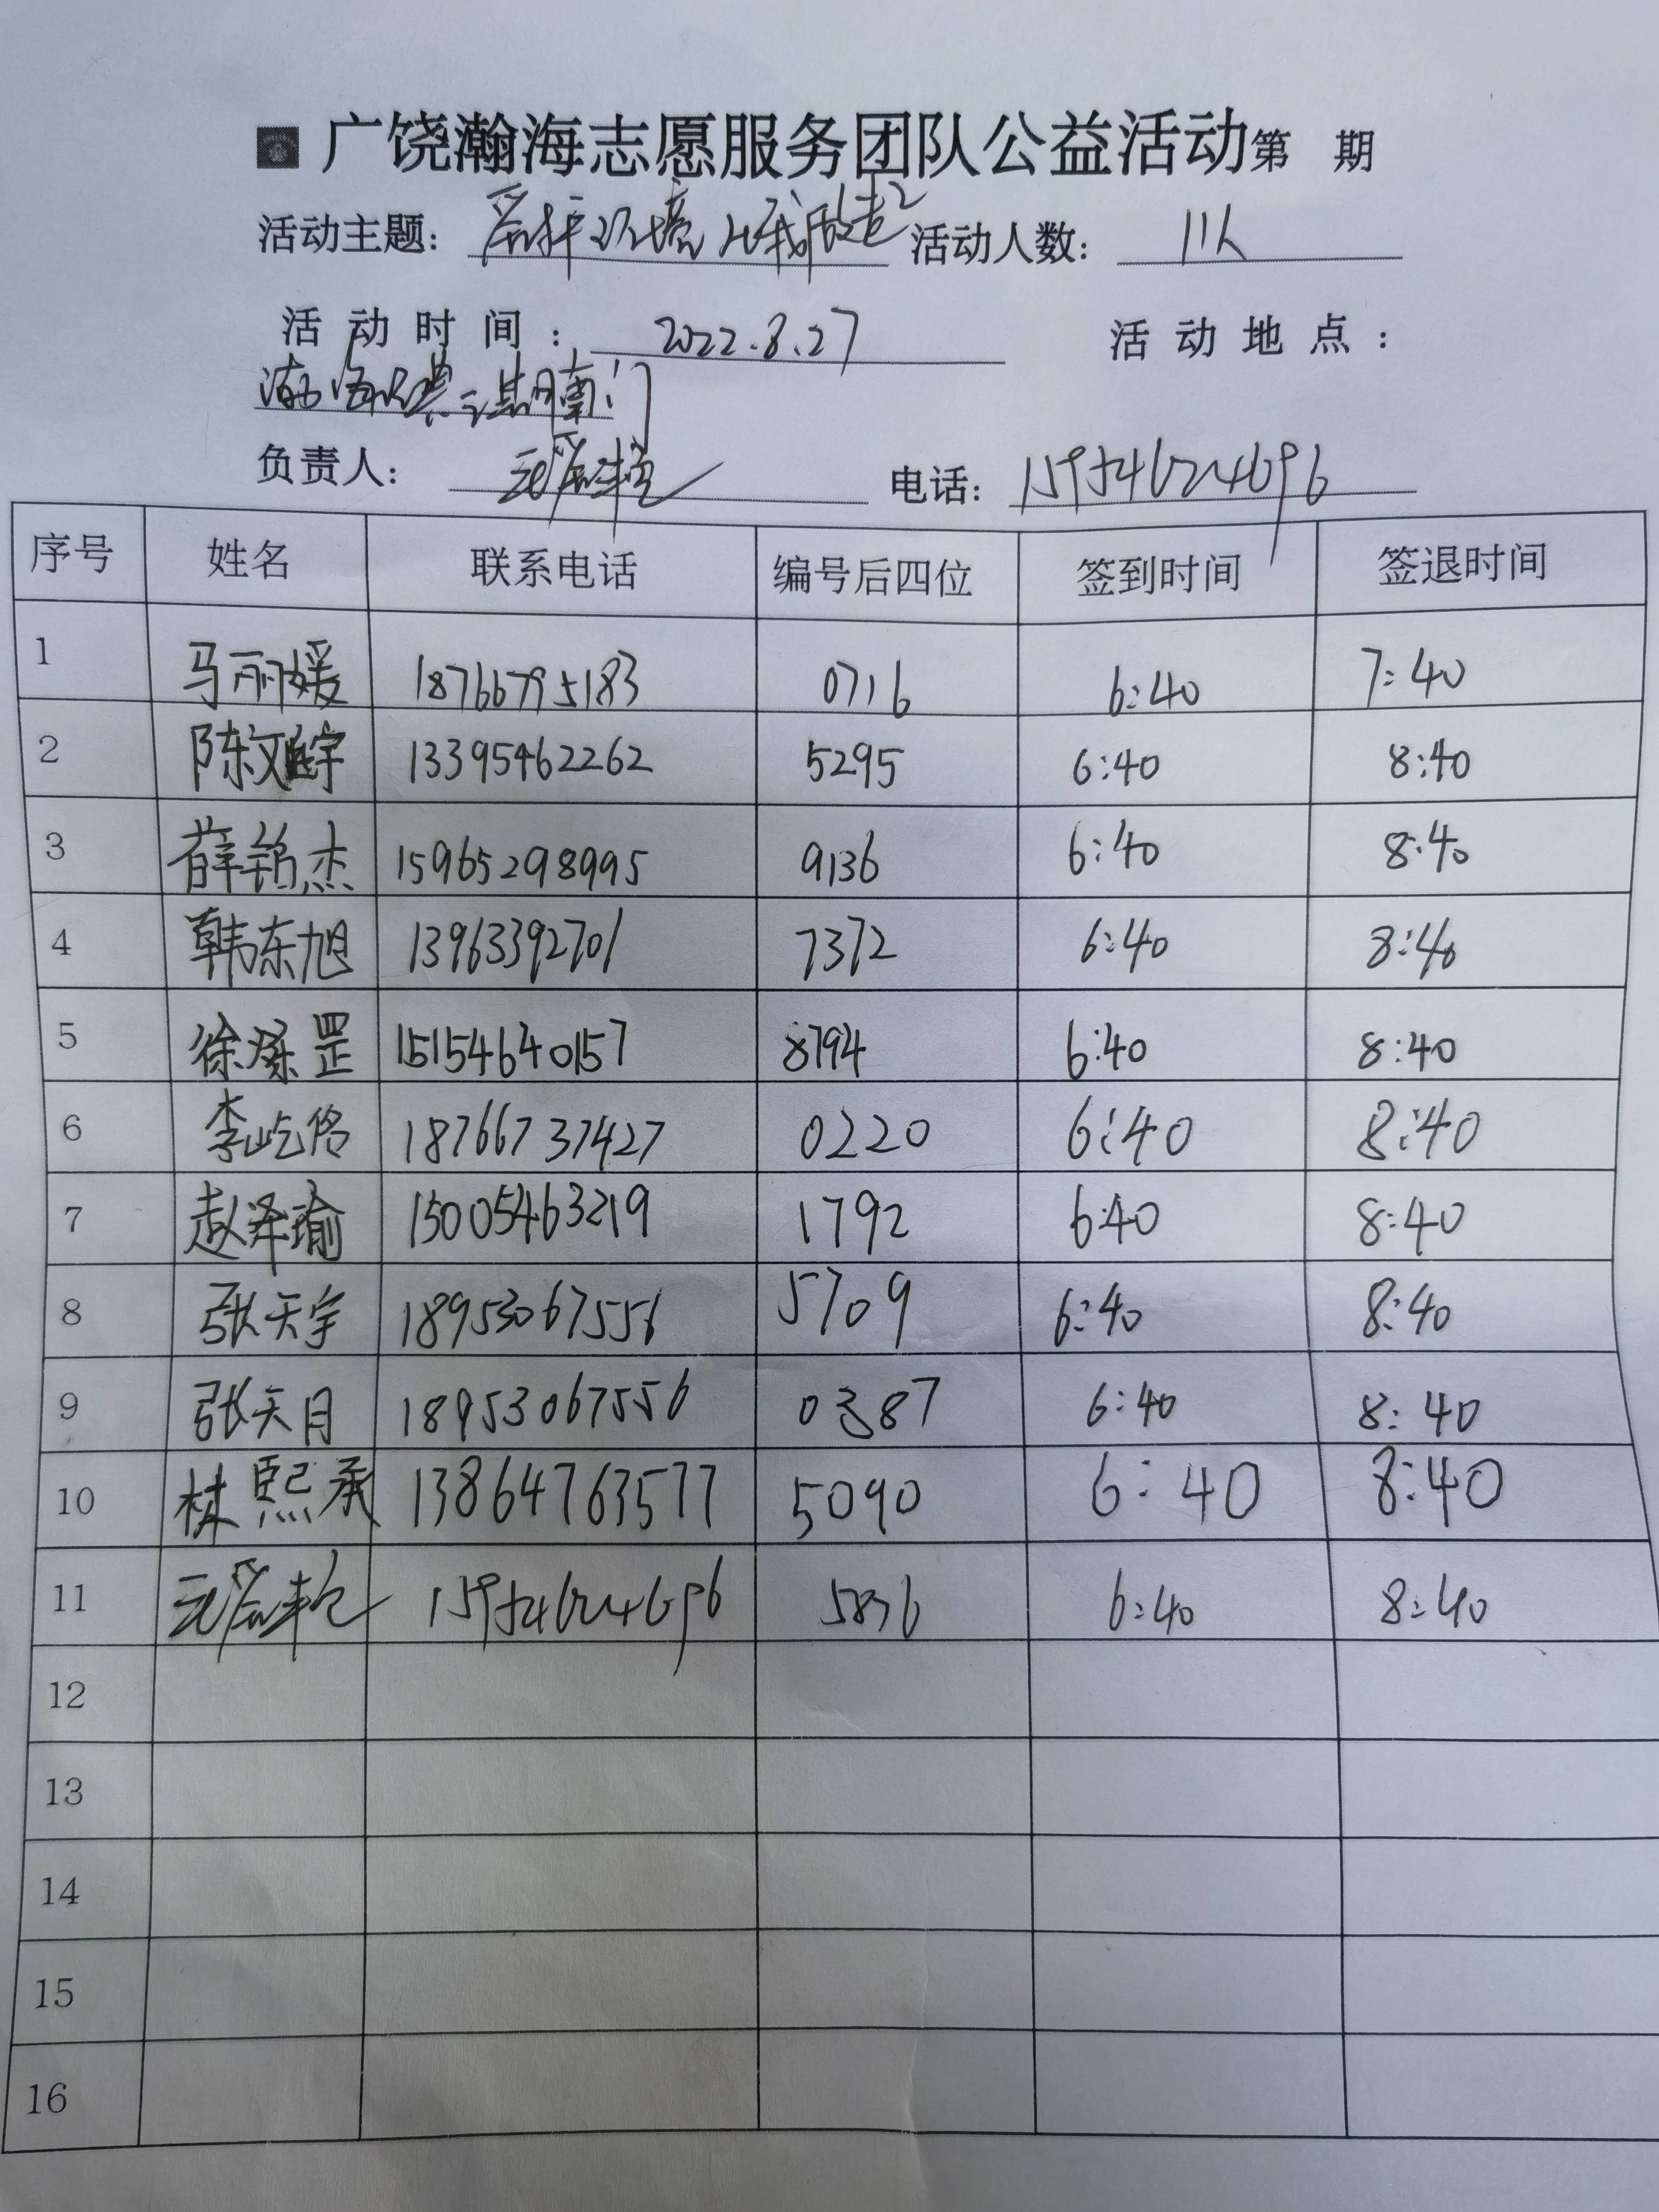 广饶瀚海志愿服务团队公益活动第 期
活动主题: 爱护环境 从我做起 活动人数: 11人
活动时间: 2022.8.27 活动地点:
二期南门
负责人: 电话: 15954624696
序号 姓名 联系电话 编号后四位 签到时间 签退时间
1 马丽媛 18766795183 0716 6:40 7:40
2 陈文宇 13395462262 5295 6:40 8:40
3 薛铭杰 15965298995 9136 6:40 8:40
4 韩东旭 13963392701 7372 6:40 8:40
5 徐 罡 15154640157 8794 6:40 8:40
6 李屹 18766737427 0220 6:40 8:40
7 赵泽瑜 15005463219 1792 6:40 8:40
8 张天宇 18953067556 5709 6:40 8:40
9 张天月 18953067556 87 6:40 8:40
10 林熙承 13864763577 5090 6:40 8:40
11 15954624696 5836 6:40 8:40
12
13
14
15
16